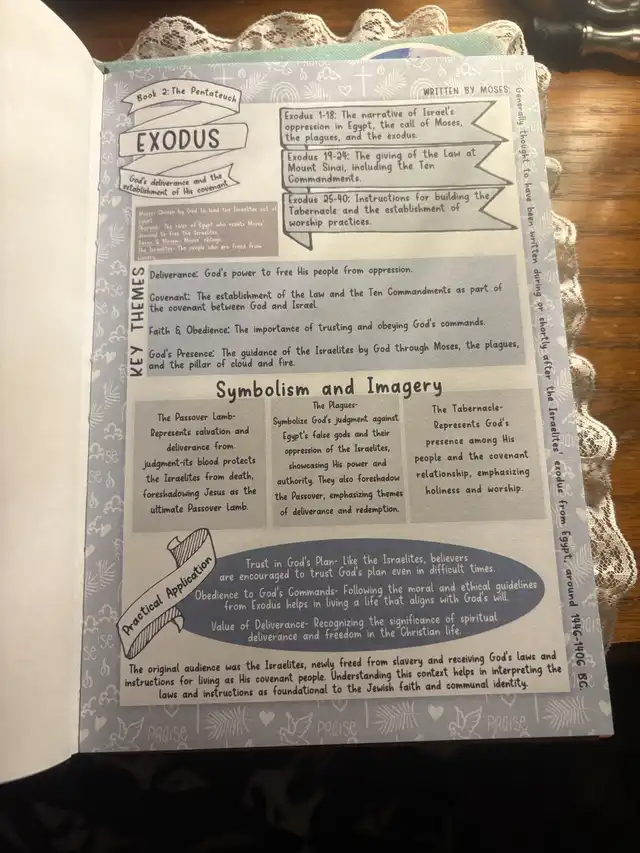 Book 2: The Pentateuch
EXODUS
God's deliverance and the
establishment of His covenant
WRITTEN BY MOSES:
Generally thought to have been written during or shortly after the Israelites' exodus from Egypt, around 1446-1406 BC.
Exodus 1-18: The narrative of Israel's
oppression in Egypt, the call of Moses,
the plagues, and the exodus.
Exodus 19-24: The giving of the Law at
Mount Sinai, including the Ten
Commandments.
Exodus 25-40: Instructions for building the
Tabernacle and the establishment of
worship practices.
Moses: Chosen by God to lead the Israelites out of
Egypt
Pharaoh: The ruler of Egypt who resists Moses'
demand to free the Israelites
Aaron & Miriam: Moses' siblings
The Israelites: The people who are freed from
slavery
KEY THEMES
Deliverance: God's power to free His people from oppression.
Covenant: The establishment of the Law and the Ten Commandments as part of
the covenant between God and Israel.
Faith & Obedience: The importance of trusting and obeying God's commands.
God's Presence: The guidance of the Israelites by God through Moses, the plagues,
and the pillar of cloud and fire.
Symbolism and Imagery
The Passover Lamb-
Represents salvation and
deliverance from
judgment-its blood protects
the Israelites from death,
foreshadowing Jesus as the
ultimate Passover Lamb.
The Plagues-
Symbolize God's judgment against
Egypt's false gods and their
oppression of the Israelites,
showcasing His power and
authority. They also foreshadow
the Passover, emphasizing themes
of deliverance and redemption.
The Tabernacle-
Represents God's
presence among His
people and the covenant
relationship, emphasizing
holiness and worship.
Practical Application
Trust in God's Plan- Like the Israelites, believers
are encouraged to trust God's plan even in difficult times.
Obedience to God's Commands- Following the moral and ethical guidelines
from Exodus helps in living a life that aligns with God's will.
Value of Deliverance- Recognizing the significance of spiritual
deliverance and freedom in the Christian life.
The original audience was the Israelites, newly freed from slavery and receiving God's laws and
instructions for living as His covenant people. Understanding this context helps in interpreting the
laws and instructions as foundational to the Jewish faith and communal identity.
PRAISE
PRAISE
PRAISE